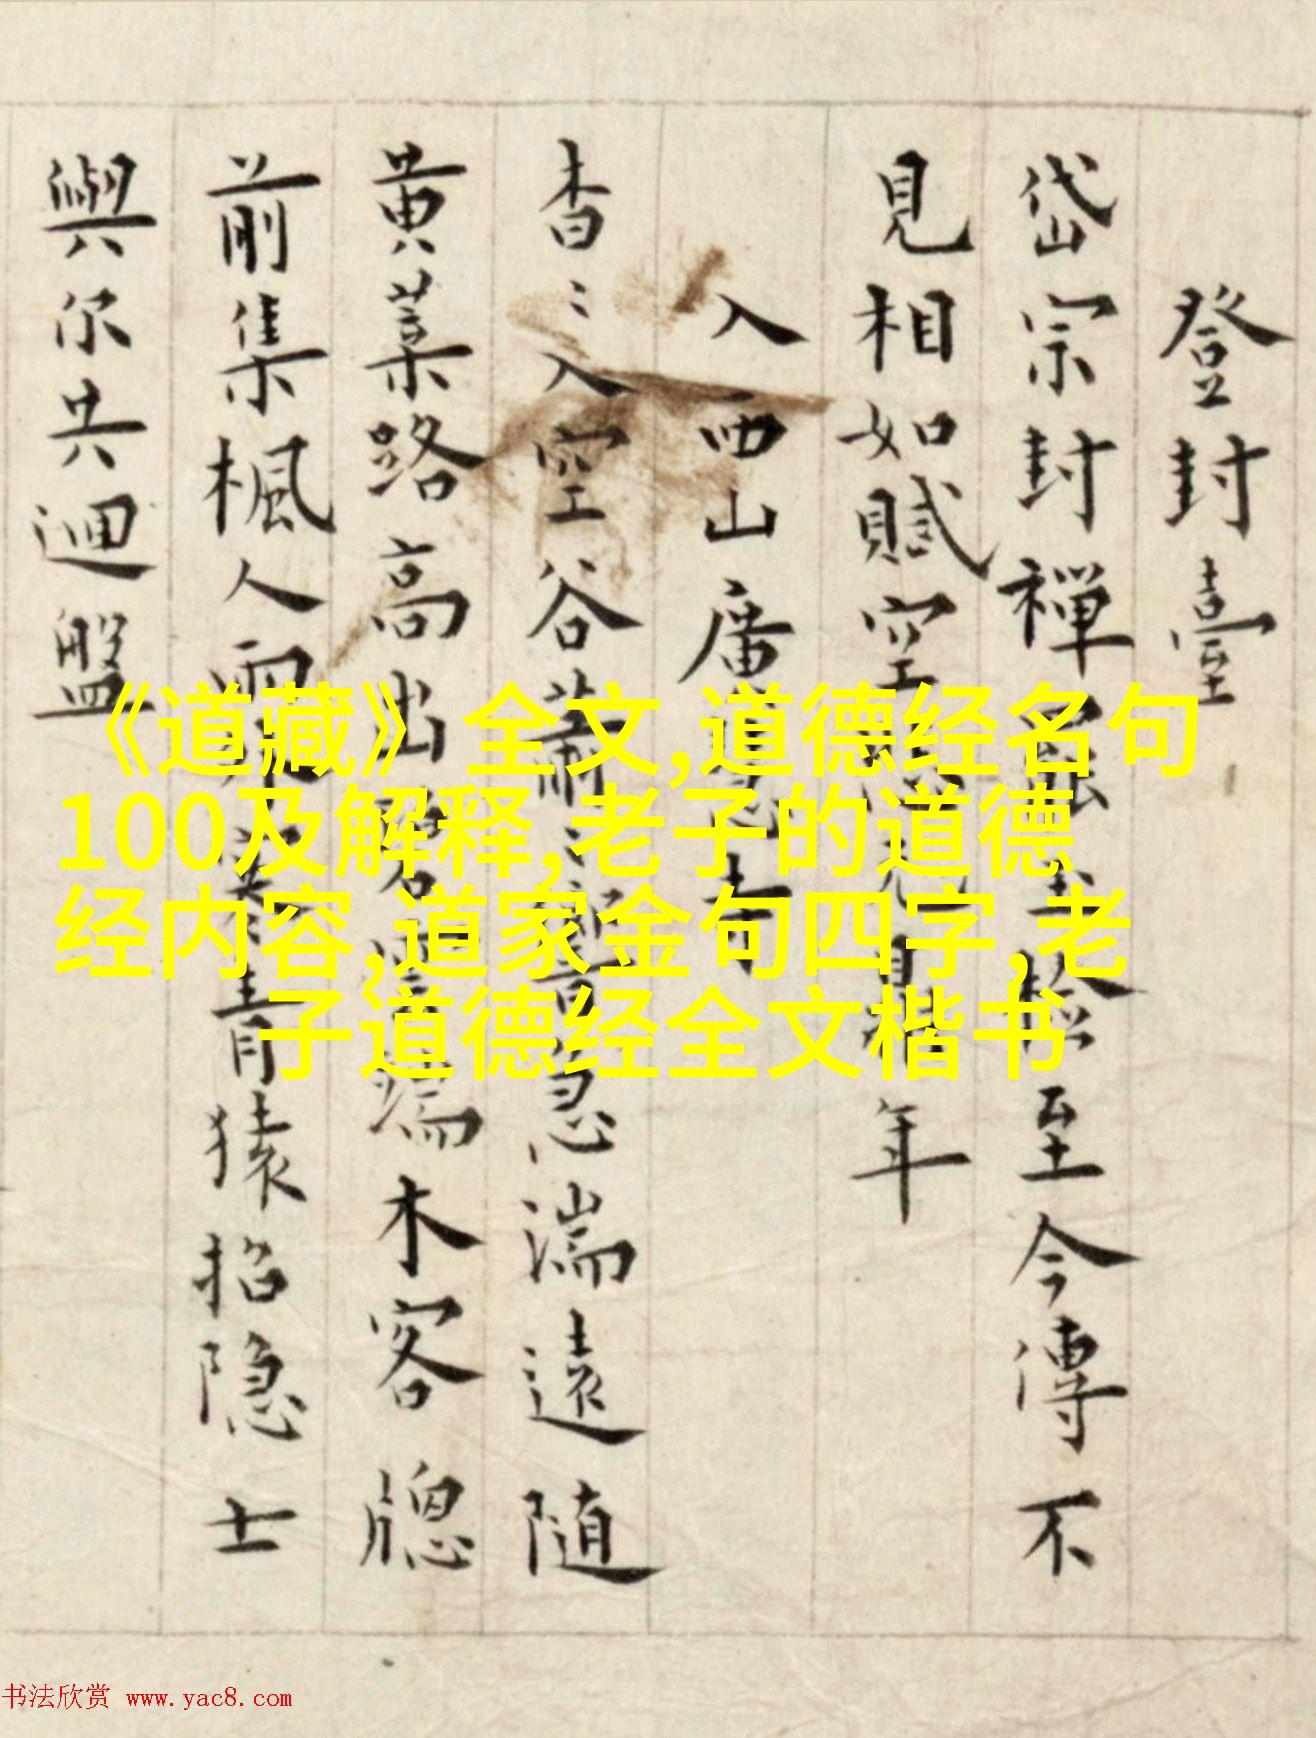 登封臺
岱宗封禪 至今傳不
見相如賦空 年
入西山
杳〻入空谷蕭〻 急湍遠隨
黄葉路高出 端木客牕
前集楓人 青猿招隐士
與尔共迴盤
《道藏》全文,道德经名句
100及解释,老子的道德
经内容,道家金句四字,老
子道德经全文楷书
书法欣赏 www.yac8.com